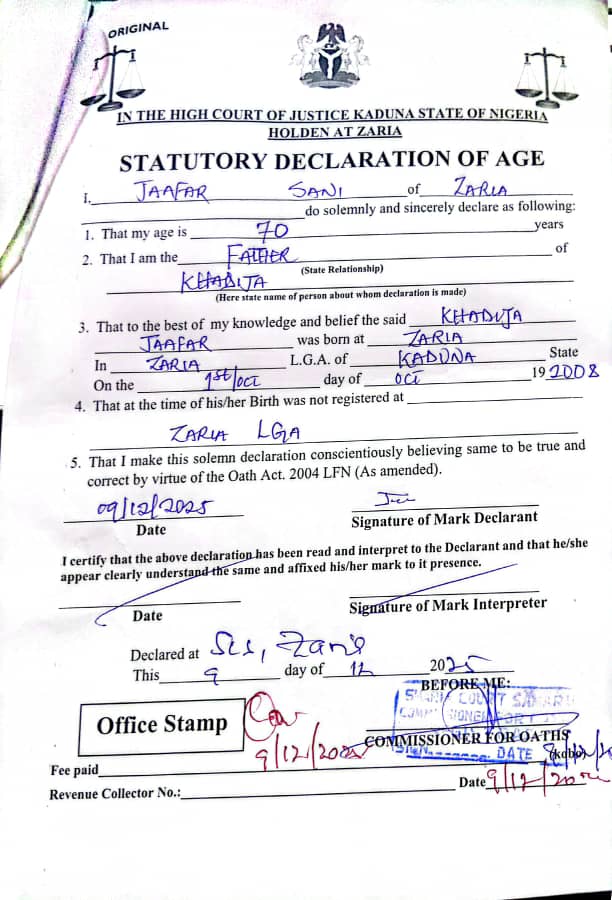 ORIGINAL
IN THE HIGH COURT OF JUSTICE KADUNA STATE OF NIGERIA
HOLDEN AT ZARIA
STATUTORY DECLARATION OF AGE
I, JAAFAR SANI of ZARIA
do solemnly and sincerely declare as following:
1. That my age is 70 years
2. That I am the FATHER of
(State Relationship)
KHADIJA
(Here state name of person about whom declaration is made)
3. That to the best of my knowledge and belief the said KHADIJA
JAAFAR was born at ZARIA
In ZARIA L.G.A. of KADUNA State
On the 1st/OCT day of OCT 19 2008
4. That at the time of his/her Birth was not registered at
ZARIA LGA
5. That I make this solemn declaration conscientiously believing same to be true and
correct by virtue of the Oath Act. 2004 LFN (As amended).
09/12/2025
Date
Signature of Mark Declarant
I certify that the above declaration has been read and interpret to the Declarant and that he/she
appear clearly understand the same and affixed his/her mark to it presence.
Date
Signature of Mark Interpreter
Declared at Zaria
This 9 day of 12 2025
BEFORE ME:
SHARIA COURT SAMARU
Office Stamp
COMMISSIONER FOR OATHS
9/12/2025
SIGN DATE
(kobo)
Fee paid
Revenue Collector No.: Date 9/12/2025